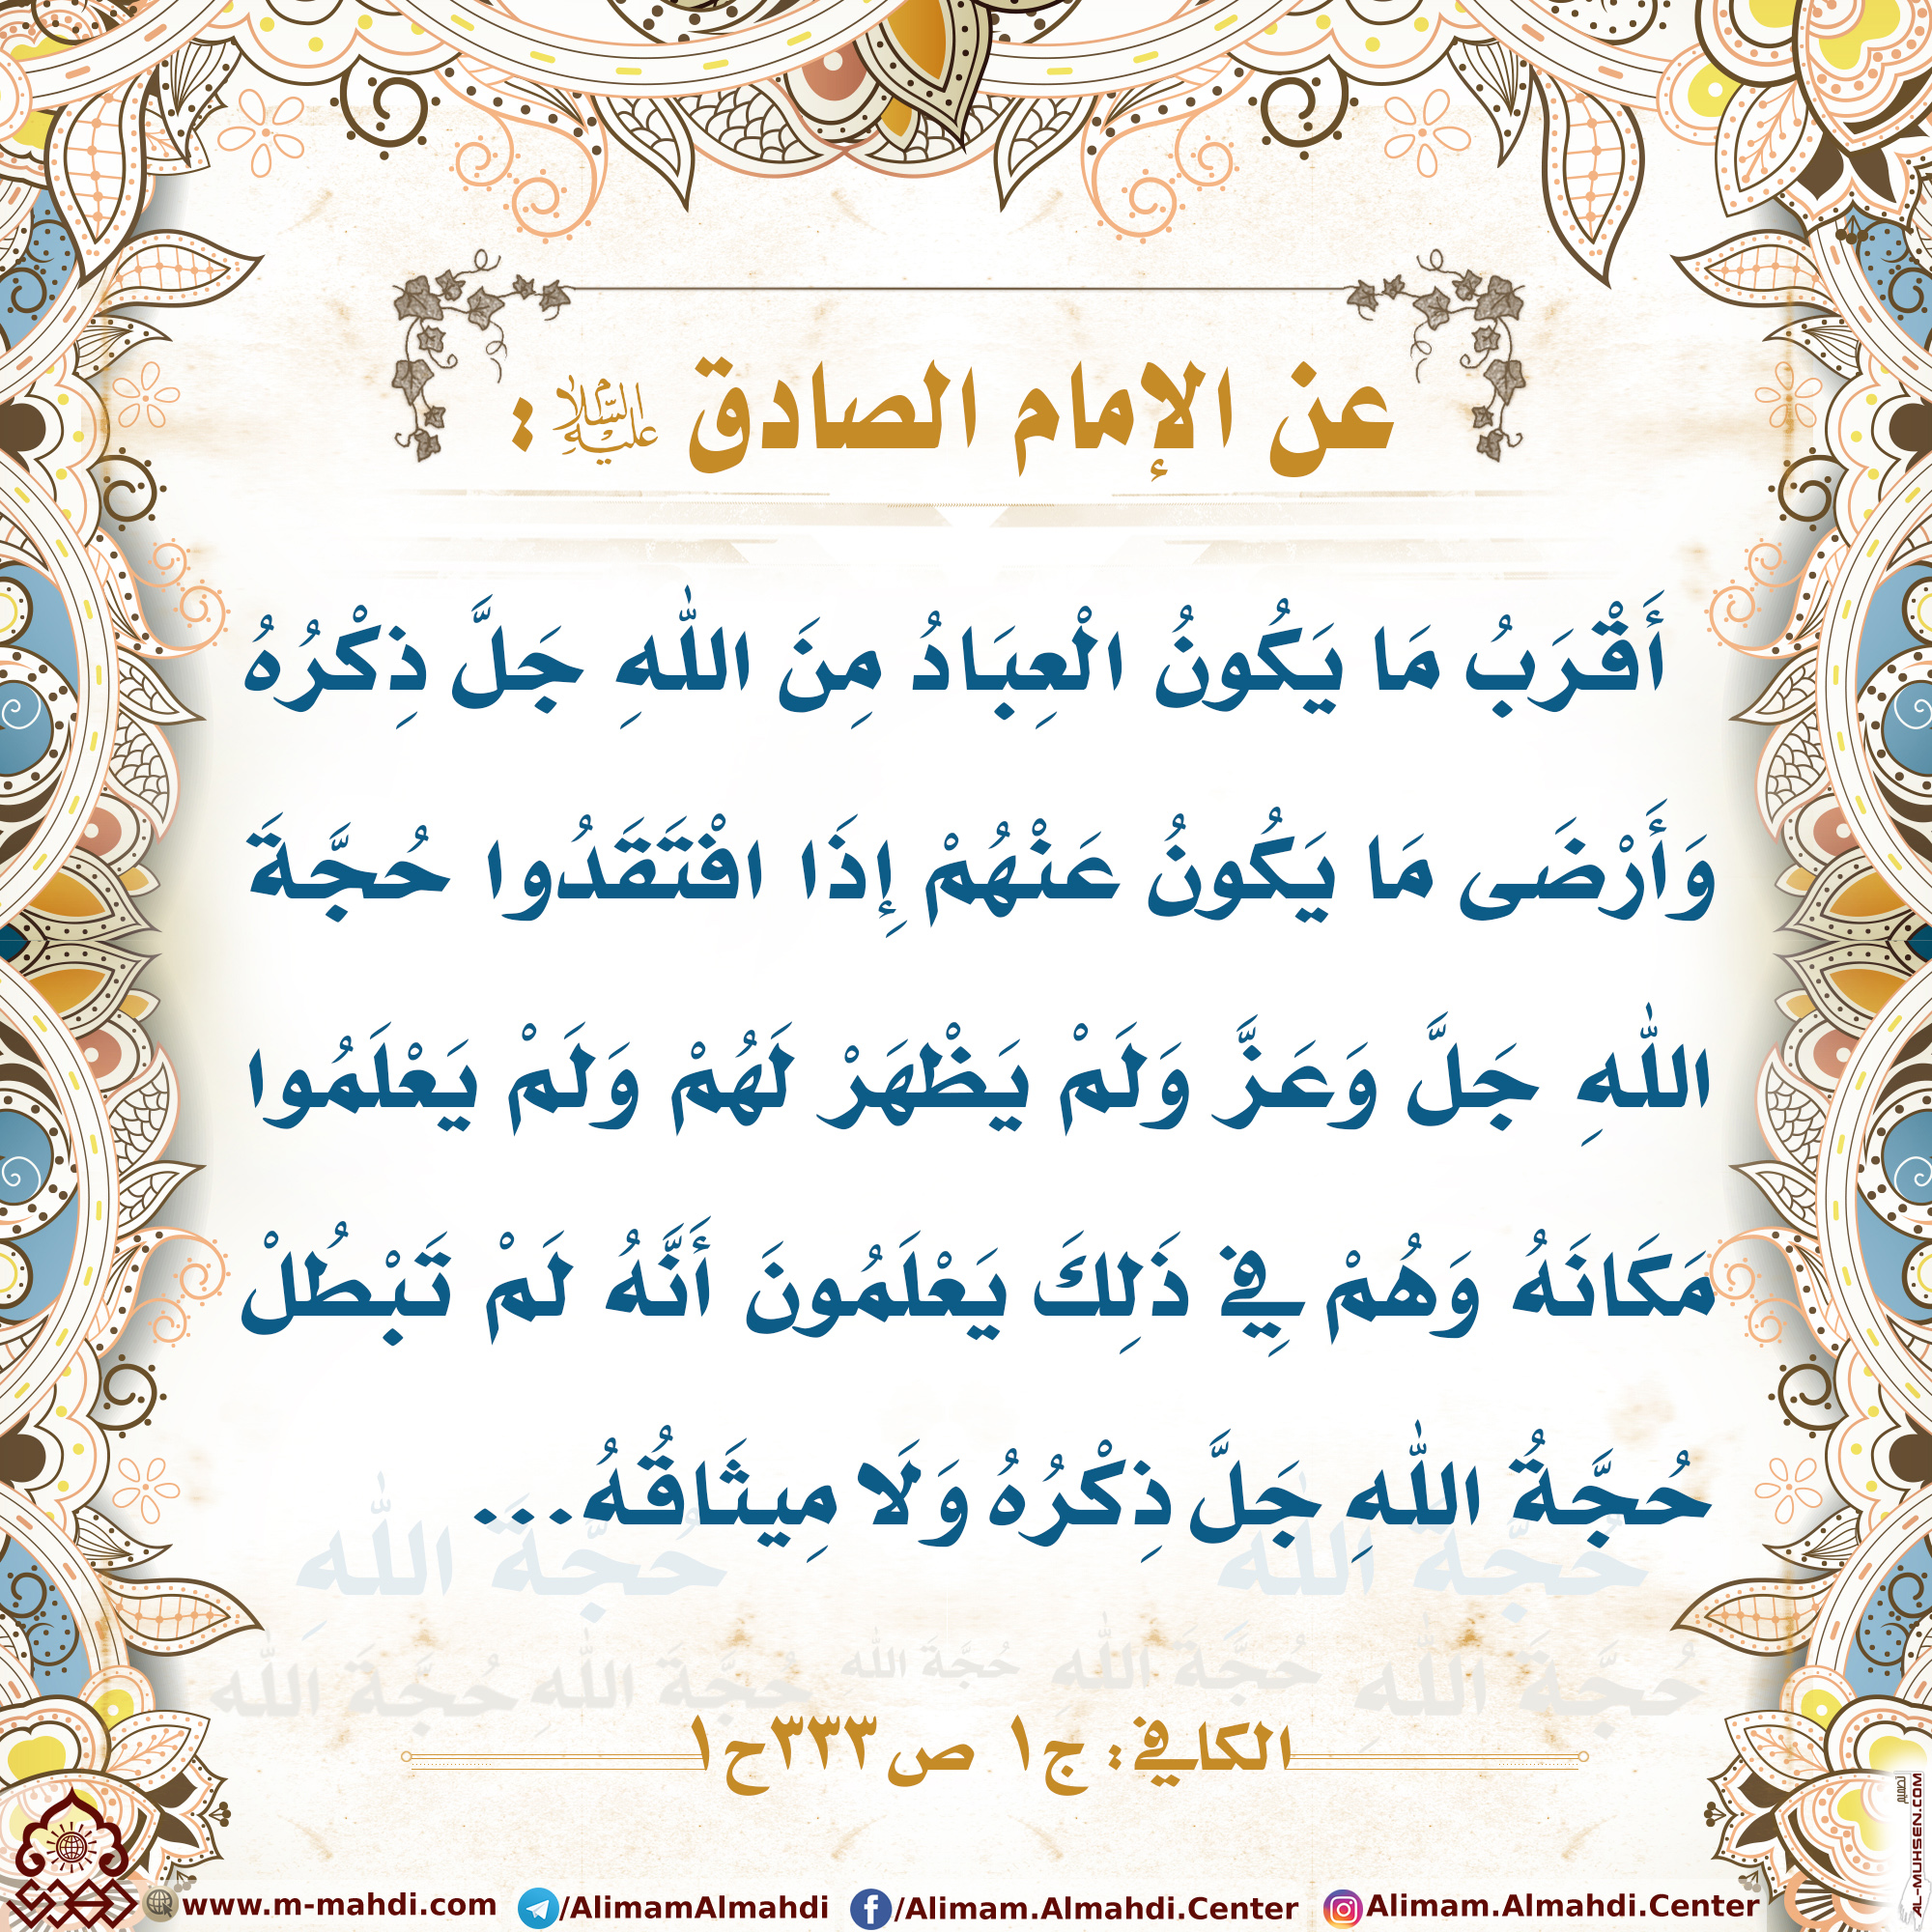 عن الإمام الصادق عليه السلام :
أَقْرَبُ مَا يَكُونُ الْعِبَادُ مِنَ اللهِ جَلَّ ذِكْرُهُ
وَأَرْضَى مَا يَكُونُ عَنْهُمْ إِذَا افْتَقَدُوا حُجَّةَ
اللهِ جَلَّ وَعَزَّ وَلَمْ يَظْهَرْ لَهُمْ وَلَمْ يَعْلَمُوا
مَكَانَهُ وَهُمْ فِي ذَلِكَ يَعْلَمُونَ أَنَّهُ لَمْ تَبْطُلْ
حُجَّةُ اللهِ جَلَّ ذِكْرُهُ وَلَا مِيثَاقُهُ...
حُجَّةَ اللهِ حُجَّةَ اللهِ
حُجَّةَ اللهِ حُجَّةَ اللهِ حُجَّةَ اللهِ حُجَّةَ اللهِ حُجَّةَ اللهِ
الكافي: ج١ ص٣٣٣ح١
www.m-mahdi.com /AlimamAlmahdi /Alimam.Almahdi.Center Alimam.Almahdi.Center
تصميم
AL-MUHSEN.COM